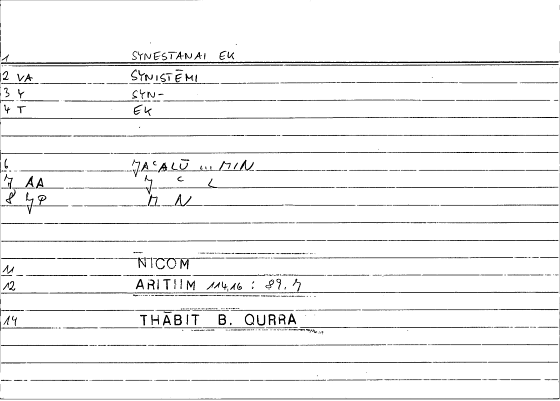 1 SYNESTANAI EK
2 VA SYNISTĒMI
3 Y SYN-
4 T EK
6 YAʿALŪ ... MIN
7 AA Y ʿ L
8 YP M N
11 NICOM
12 ARITIIM 114,16 : 89.7
14 THĀBIT B. QURRA